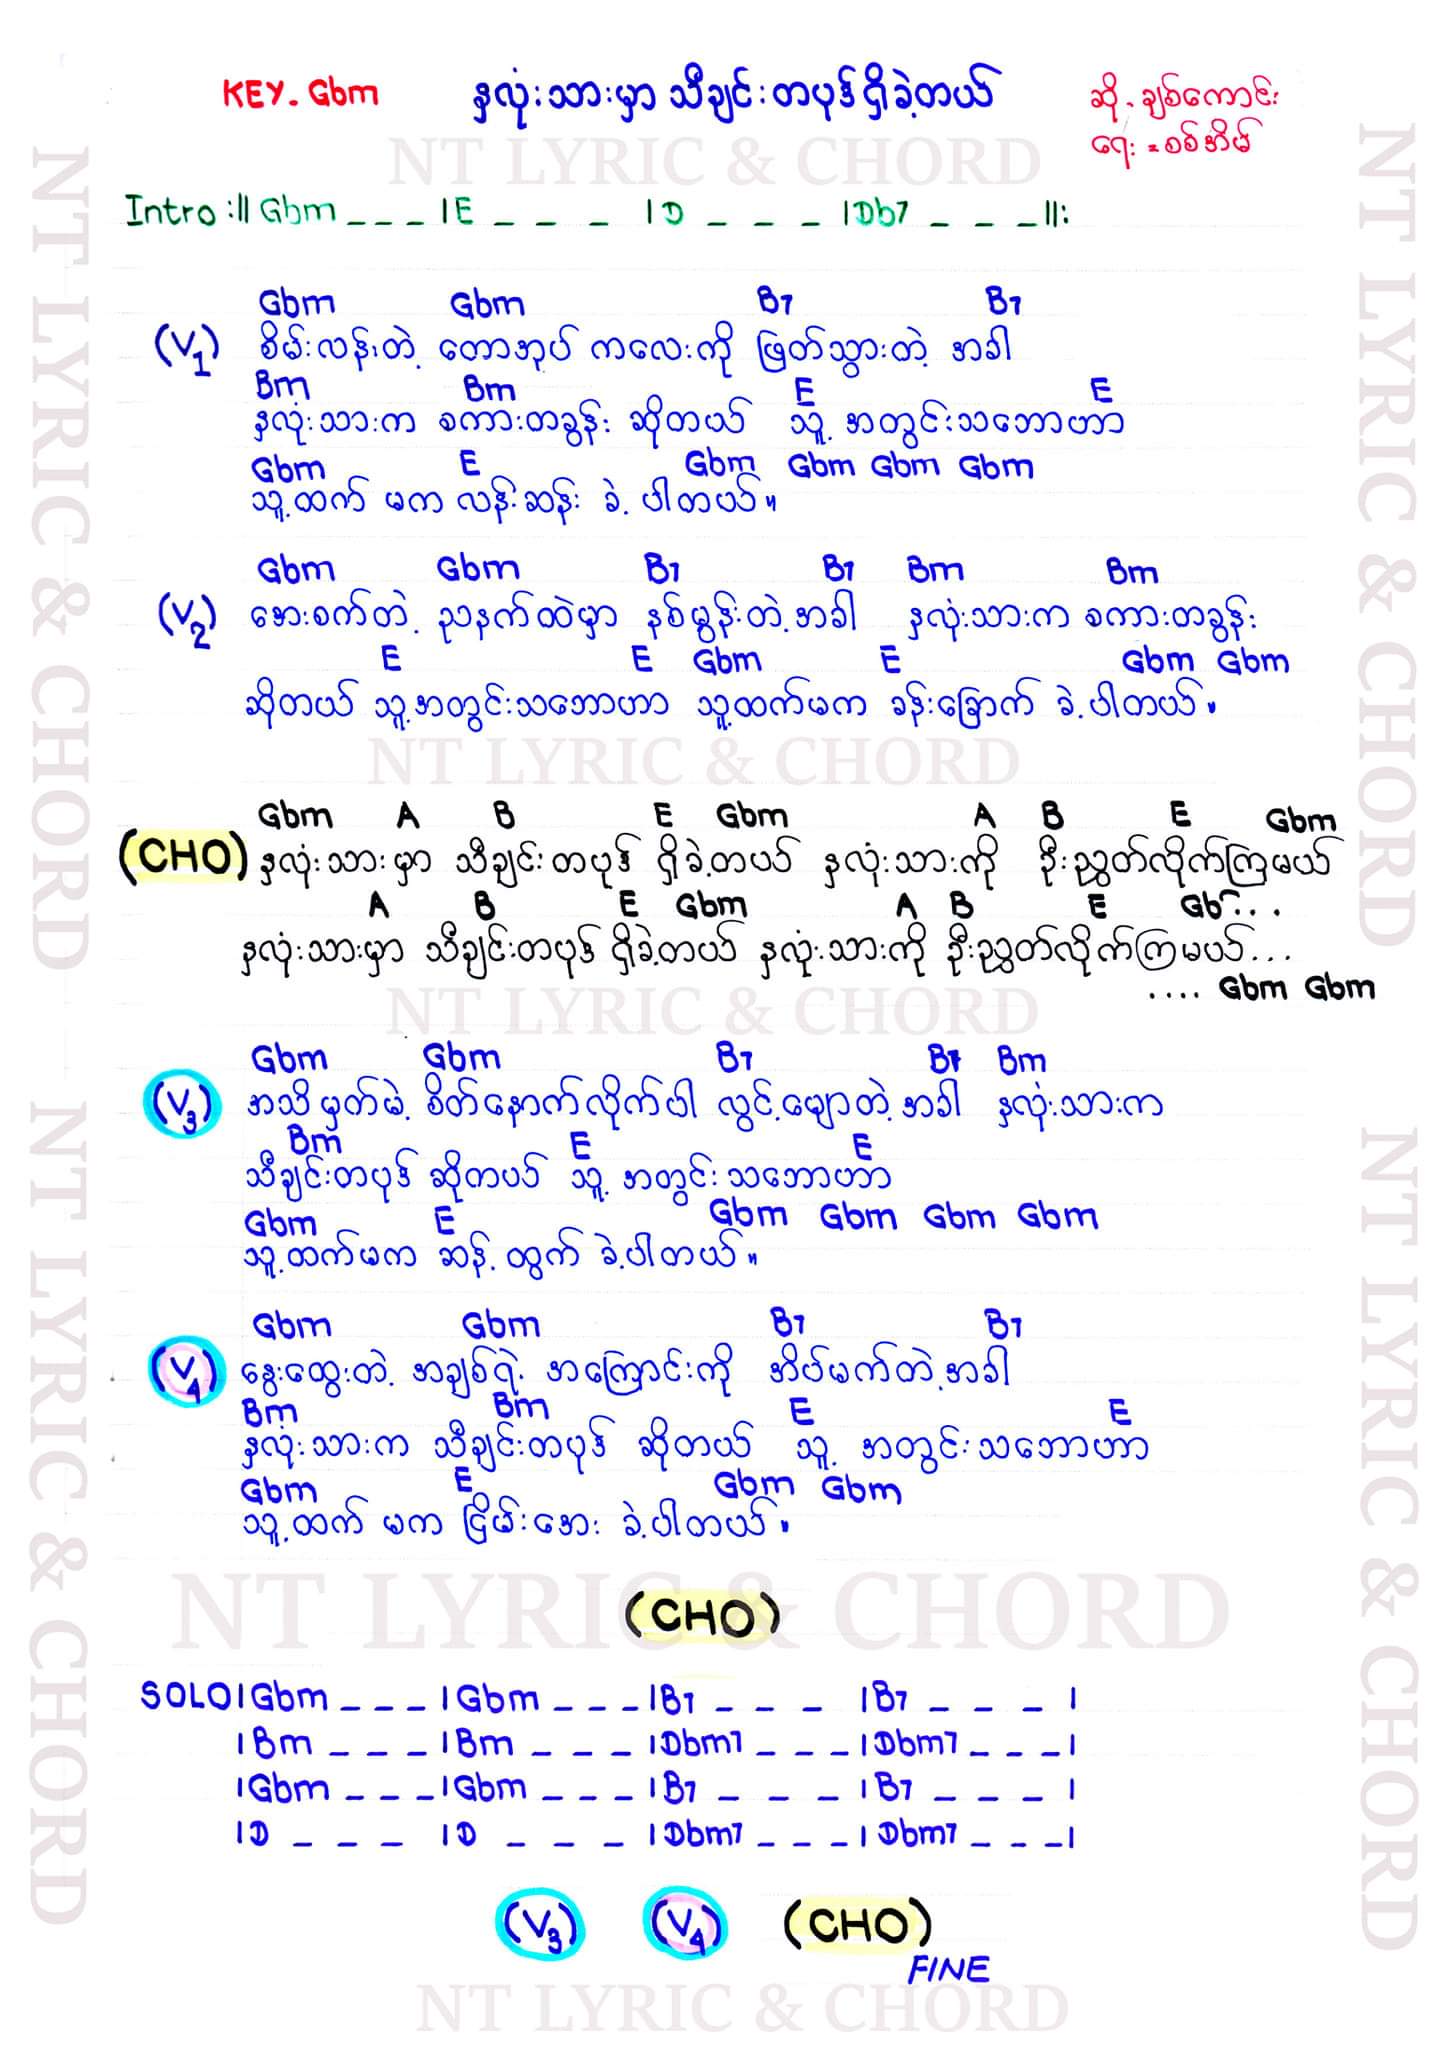 KEY. Gbm နှလုံးသားမှာ သီချင်းတပုဒ်ရှိခဲ့တယ် ဆို . ချစ်ကောင်း
ရေး = စစ်အိမ်
NT LYRIC & CHORD
Intro :|| Gbm _ _ _ | E _ _ _ | D _ _ _ | Db7 _ _ _ ||:
Gbm Gbm B7 B7
(V1) စိမ်းလန်းတဲ့ တောအုပ် ကလေးကို ဖြတ်သွားတဲ့ အခါ
Bm Bm E E
နှလုံးသားက စကားတခွန်း ဆိုတယ် သူ့ အတွင်းသဘောဟာ
Gbm E Gbm Gbm Gbm Gbm
သူ့ထက် မက လန်းဆန်း ခဲ့ ပါတယ်။
Gbm Gbm B7 B7 Bm Bm
(V2) အေးစက်တဲ့ ညနက်ထဲမှာ နစ်မွန်းတဲ့အခါ နှလုံးသားက စကားတခွန်း
E E Gbm E Gbm Gbm
ဆိုတယ် သူ့အတွင်းသဘောဟာ သူ့ထက်မက ခန်းခြောက် ခဲ့ပါတယ်။
NT LYRIC & CHORD
Gbm A B E Gbm A B E Gbm
(CHO) နှလုံးသားမှာ သီချင်းတပုဒ် ရှိခဲ့တယ် နှလုံးသားကို ဦးညွှတ်လိုက်ကြမယ်
A B E Gbm A B E Gb...
နှလုံးသားမှာ သီချင်းတပုဒ် ရှိခဲ့တယ် နှလုံးသားကို ဦးညွှတ်လိုက်ကြမယ်...
.... Gbm Gbm
NT LYRIC & CHORD
Gbm Gbm B7 B7 Bm
(V3) အသိမှတ်မဲ့ စိတ်နောက်လိုက်ပါ လွင့်မျောတဲ့အခါ နှလုံးသားက
Bm E E
သီချင်းတပုဒ် ဆိုတယ် သူ့ အတွင်းသဘောဟာ
Gbm E Gbm Gbm Gbm Gbm
သူ့ထက်မက ဆန့်ထွက် ခဲ့ပါတယ်။
Gbm Gbm B7 B7
(V4) နွေးထွေးတဲ့ အချစ်ရဲ့ အကြောင်းကို အိပ်မက်တဲ့အခါ
Bm Bm E E
နှလုံးသားက သီချင်းတပုဒ် ဆိုတယ် သူ့ အတွင်းသဘောဟာ
Gbm E Gbm Gbm
သူ့ထက် မက ငြိမ်းအေး ခဲ့ပါတယ်။
(CHO)
NT LYRIC & CHORD
SOLO | Gbm _ _ _ | Gbm _ _ _ | B7 _ _ _ | B7 _ _ _ |
| Bm _ _ _ | Bm _ _ _ | Dbm7 _ _ _ | Dbm7 _ _ _ |
| Gbm _ _ _ | Gbm _ _ _ | B7 _ _ _ | B7 _ _ _ |
| D _ _ _ | D _ _ _ | Dbm7 _ _ _ | Dbm7 _ _ _ |
(V3) (V4) (CHO)
FINE
NT LYRIC & CHORD
NT LYRIC & CHORD
NT LYRIC & CHORD
NT LYRIC & CHORD
NT LYRIC & CHORD